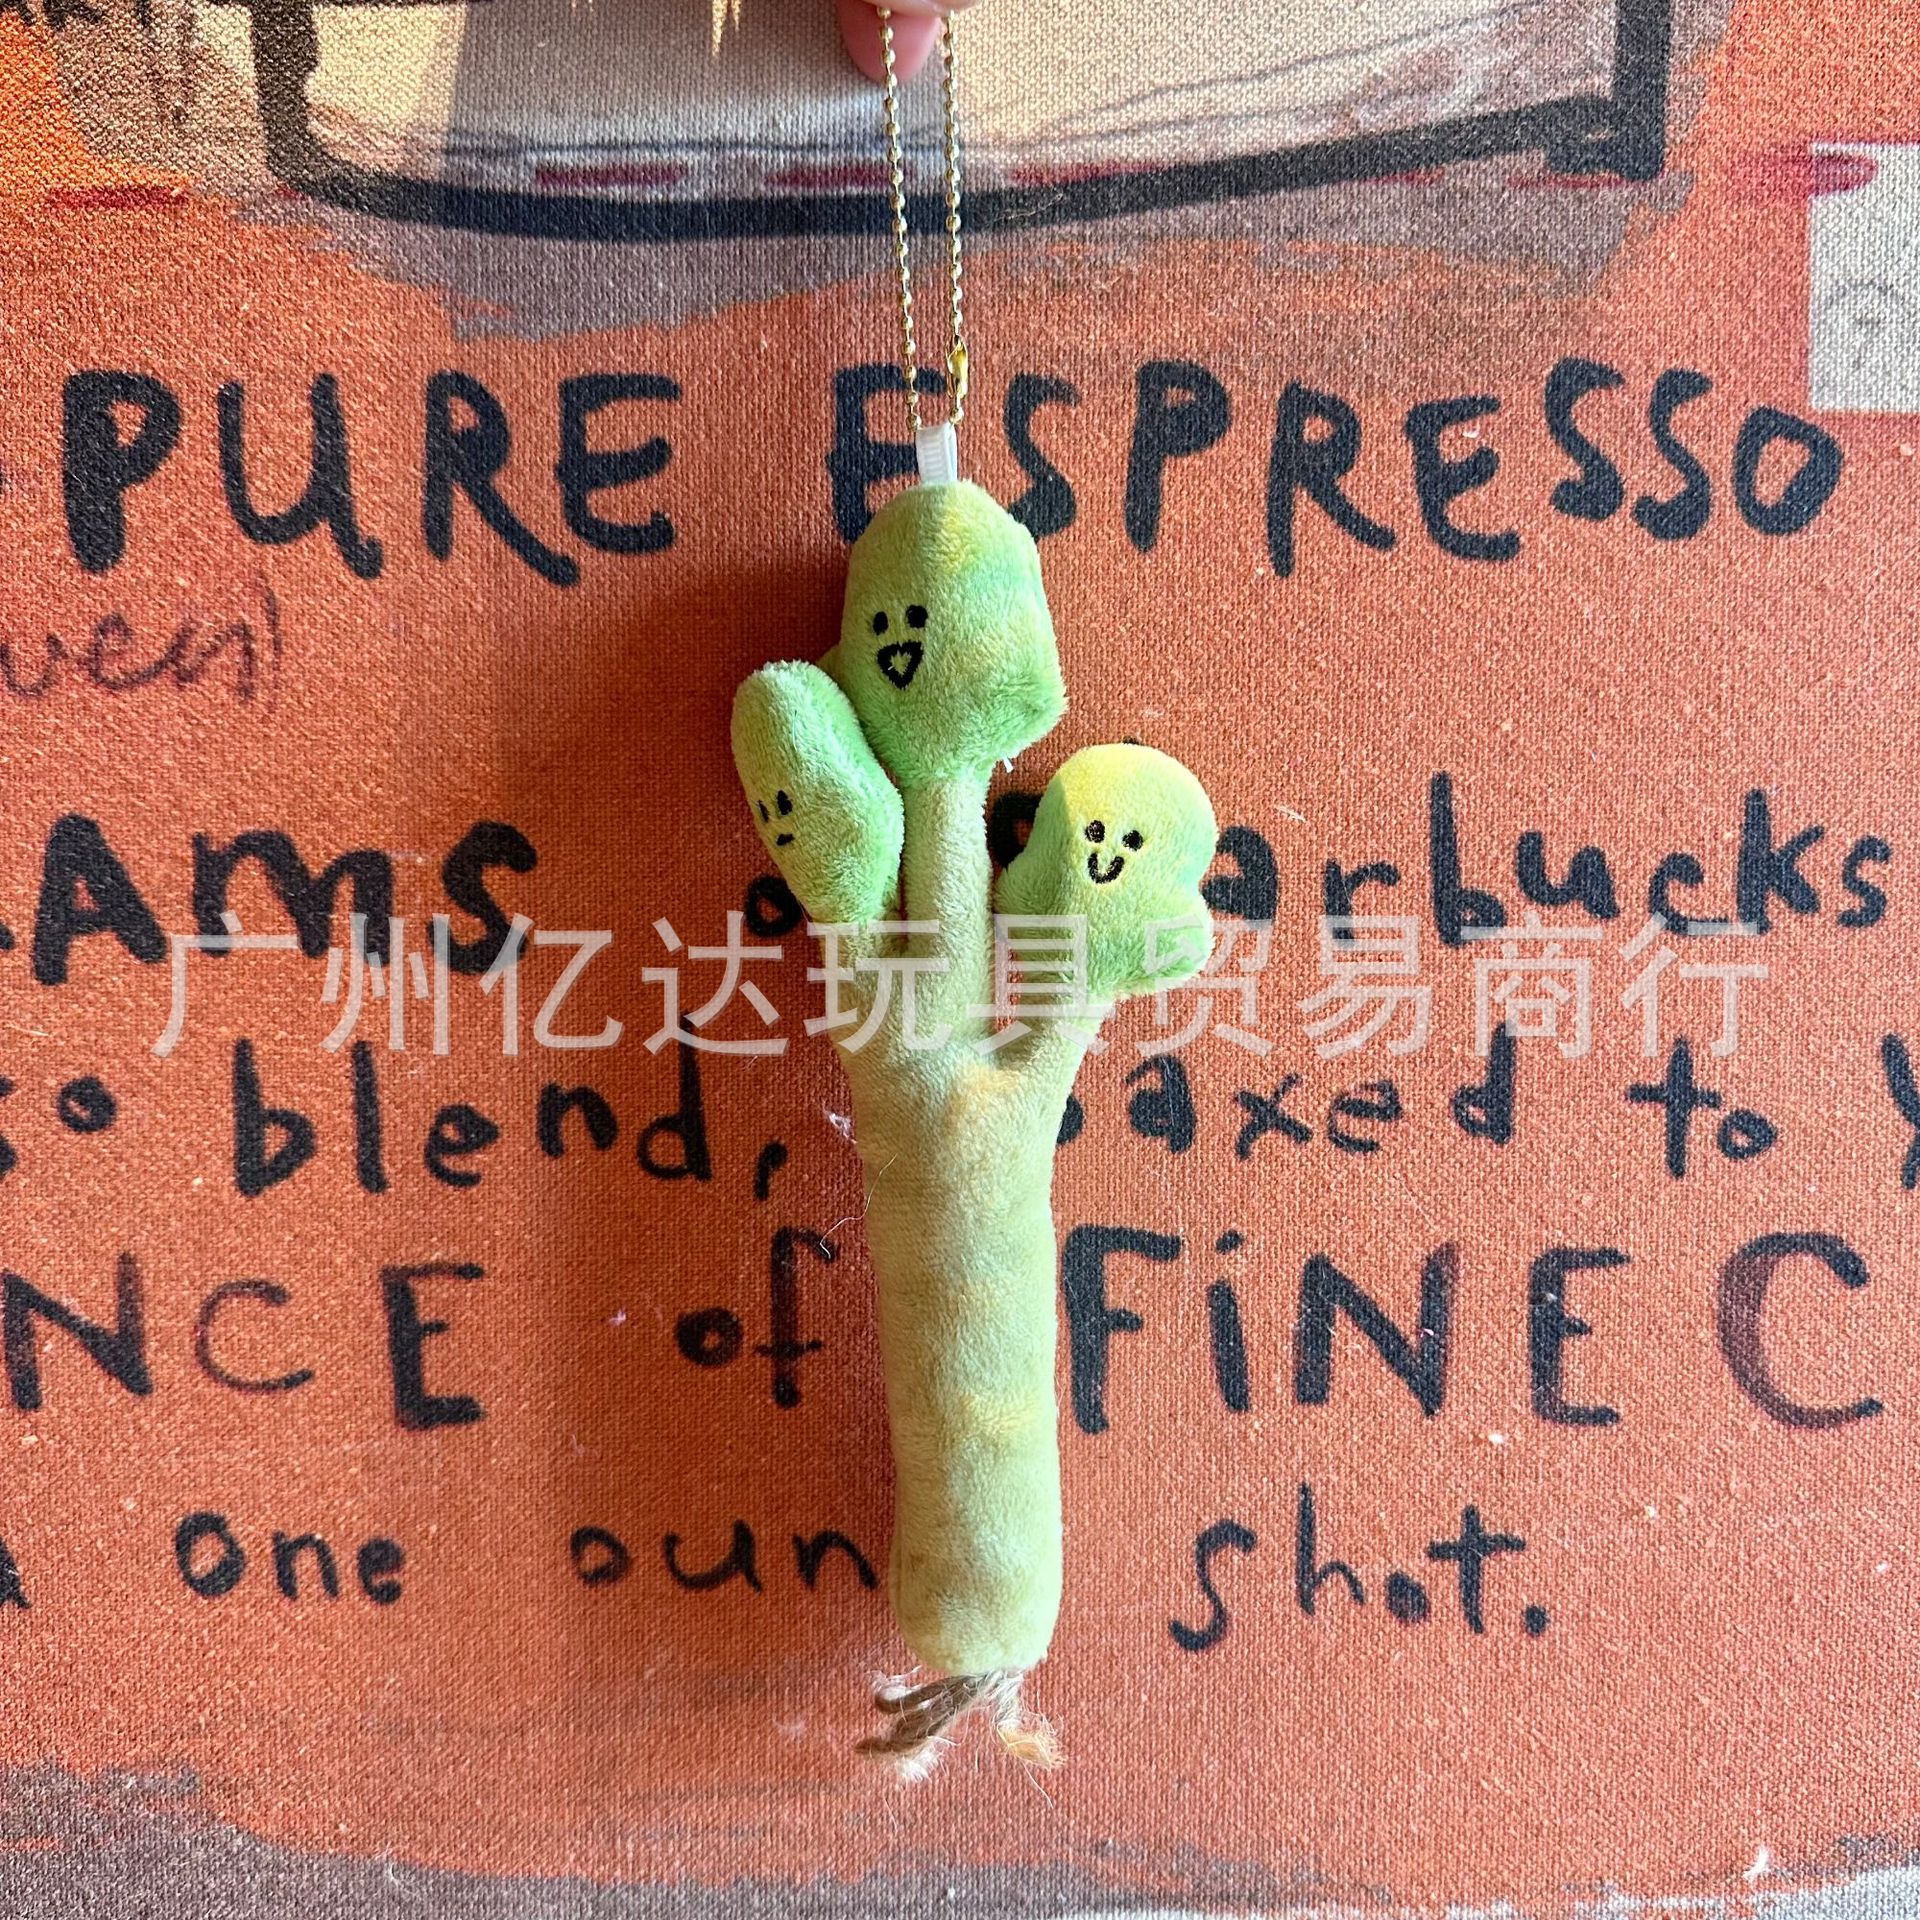 PURE ESPRESSO
Ams
arbucks
广州亿达玩具贸易商行
blend, to
NCE of FiNE C
one oun shot.